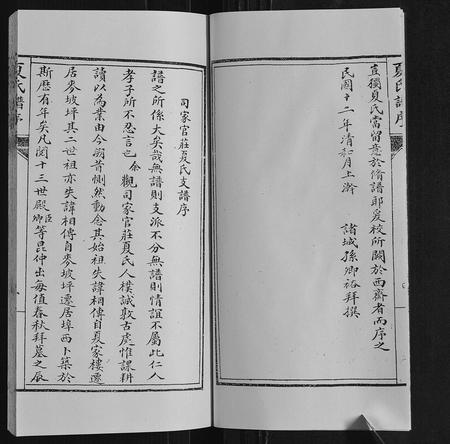 夏氏譜序
豈獨夏氏當留意於脩譜耶爰校所關於西齋者而序之
民國十二年清和月上澣
諸城孫卿裕拜撰
司家官莊夏氏支譜序
譜之所係大矣哉無譜則支派不分無譜則情誼不屬此仁人
孝子所不忍言也余觀司家官莊夏氏人樸誠敦古處惟課耕
讀以為業由今溯昔惻然動念其始祖失諱相傳自夏家樓遷
居麥坡坪其二世祖亦失諱相傳自麥坡坪遷居埠西卜築於
斯歷有年矣凡閱十三世殿臣卿等昆仲出每值春秋拜墓之辰
夏氏譜序